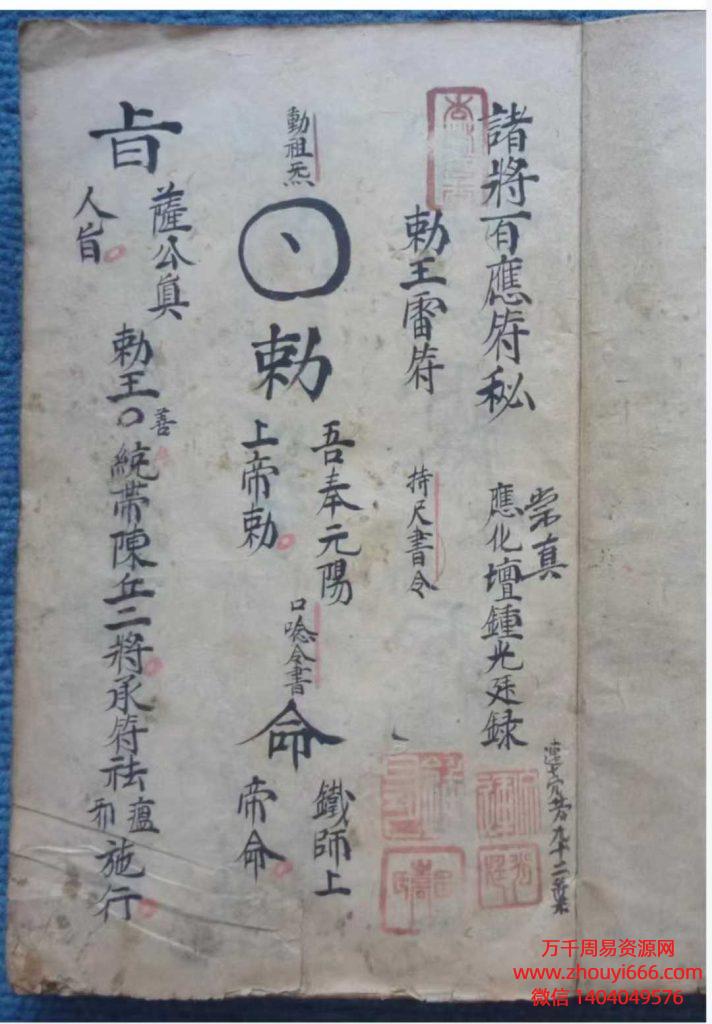 諸將百應符秘
崇真
應化壇鍾光廷録
勅王雷符
持尺書令
動祖炁
勅
吾奉元陽
上帝勅
口唸令書
命
鐵師上
帝命
旨
薩公真
人旨
勅王〇善統帶陳丘二將承符祛瘟邪施行
万千周易资源网
www.zhouyi666.com
微信 1404049576